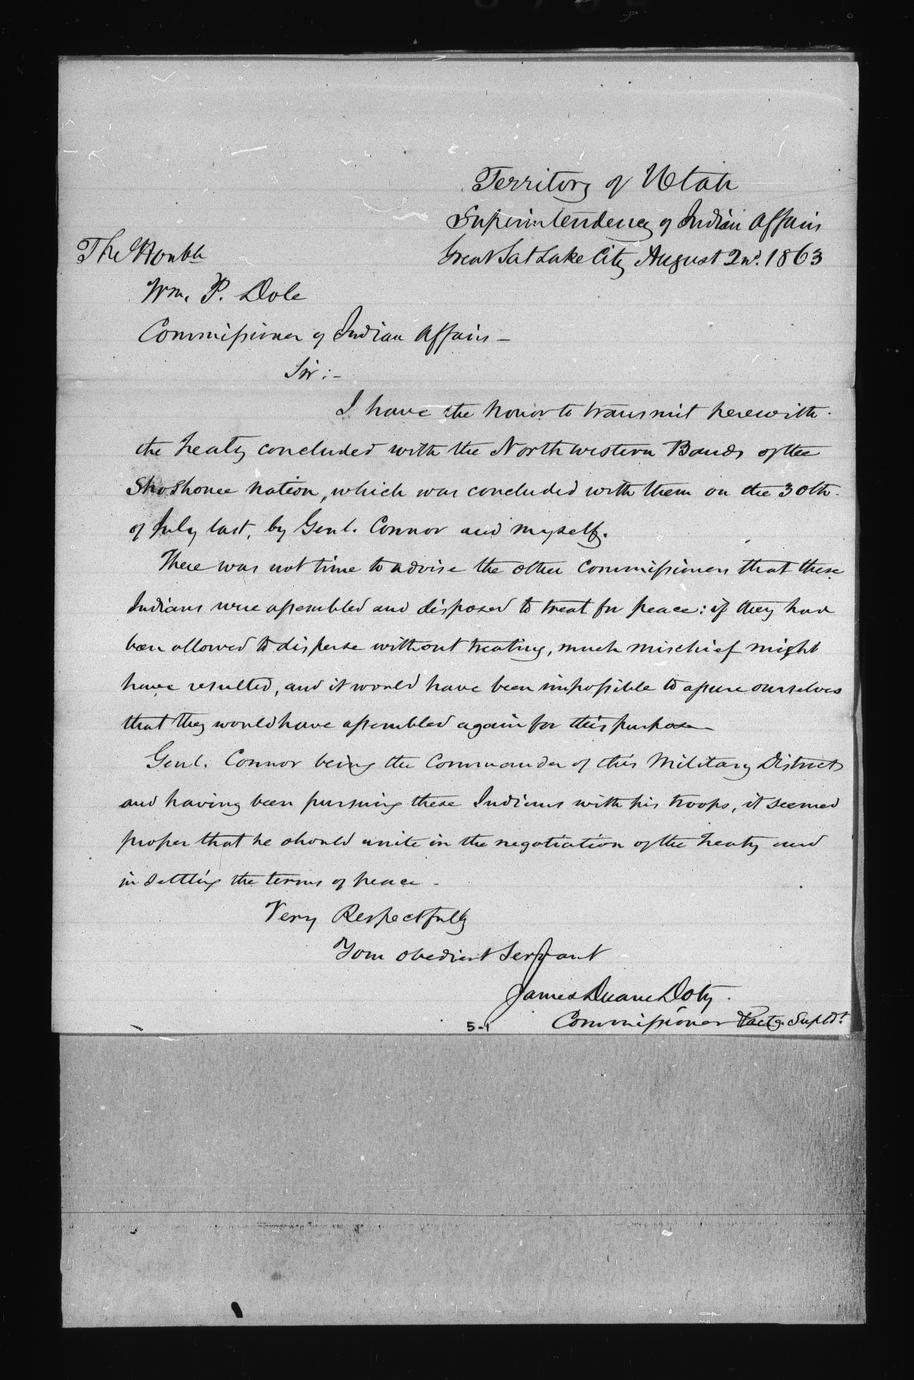 Territory of Utah
Superintendency of Indian Affairs
Great Salt Lake City August 2nd. 1863
The Honble
Wm. P. Dole
Commissioner of Indian Affairs –
Sir:–
I have the honor to transmit herewith
the treaty concluded with the Northwestern Bands of the
Shoshonee nation, which was concluded with them on the 30th
of July last, by Genl. Connor and myself.
There was not time to advise the other Commissioners that these
Indians were assembled and disposed to treat for peace: if they had
been allowed to disperse without treating, much mischief might
have resulted, and it would have been impossible to assure ourselves
that they would have assembled again for this purpose
Genl. Connor being the Commander of this Military District
and having been pursuing these Indians with his troops, it seemed
proper that he should unite in the negotiation of the treaty and
in settling the terms of peace.
Very Respectfully
Your obedient Servant
James Duane Doty.
Commissioner & actg. Supdt.
5-1